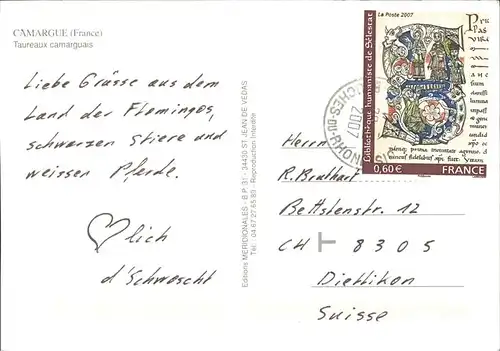 CAMARGUE (France)
Taureaux camarguais
Liebe Grüsse aus dem
Land der Flamingos,
schwarzen Stiere und
weissen Pferde.
♡lich
d'Schwoscht
Editions MERIDIONALES - B.P. 31 - 34430 ST JEAN DE VEDAS
Tél.: 04 67 27 65 83 - Reproduction interdite
La Poste 2007
Bibliothèque humaniste de Sélestat
0,60 €
FRANCE
2007
BOUCHES-DU-RHONE
Herrn
R.
Bettstenstr. 12
CH - 8305
Dietlikon
Suisse